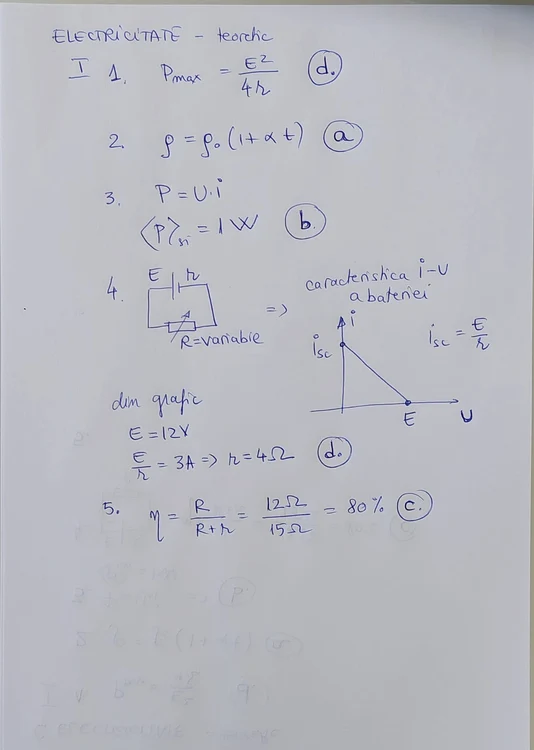 ELECTRICITATE - teoretic
I 1. Pmax = E²/4r d.
2 ρ = ρ₀ (1+αt) a
3. P = U·i
⟨P⟩SI = 1W b.
4. E r
R=variabile
=> caracteristica i-U
a bateriei
i
isc
isc = E/r
E U
din grafic
E = 12V
E/r = 3A => r = 4Ω d.
5. η = R/R+r = 12Ω/15Ω = 80% c.